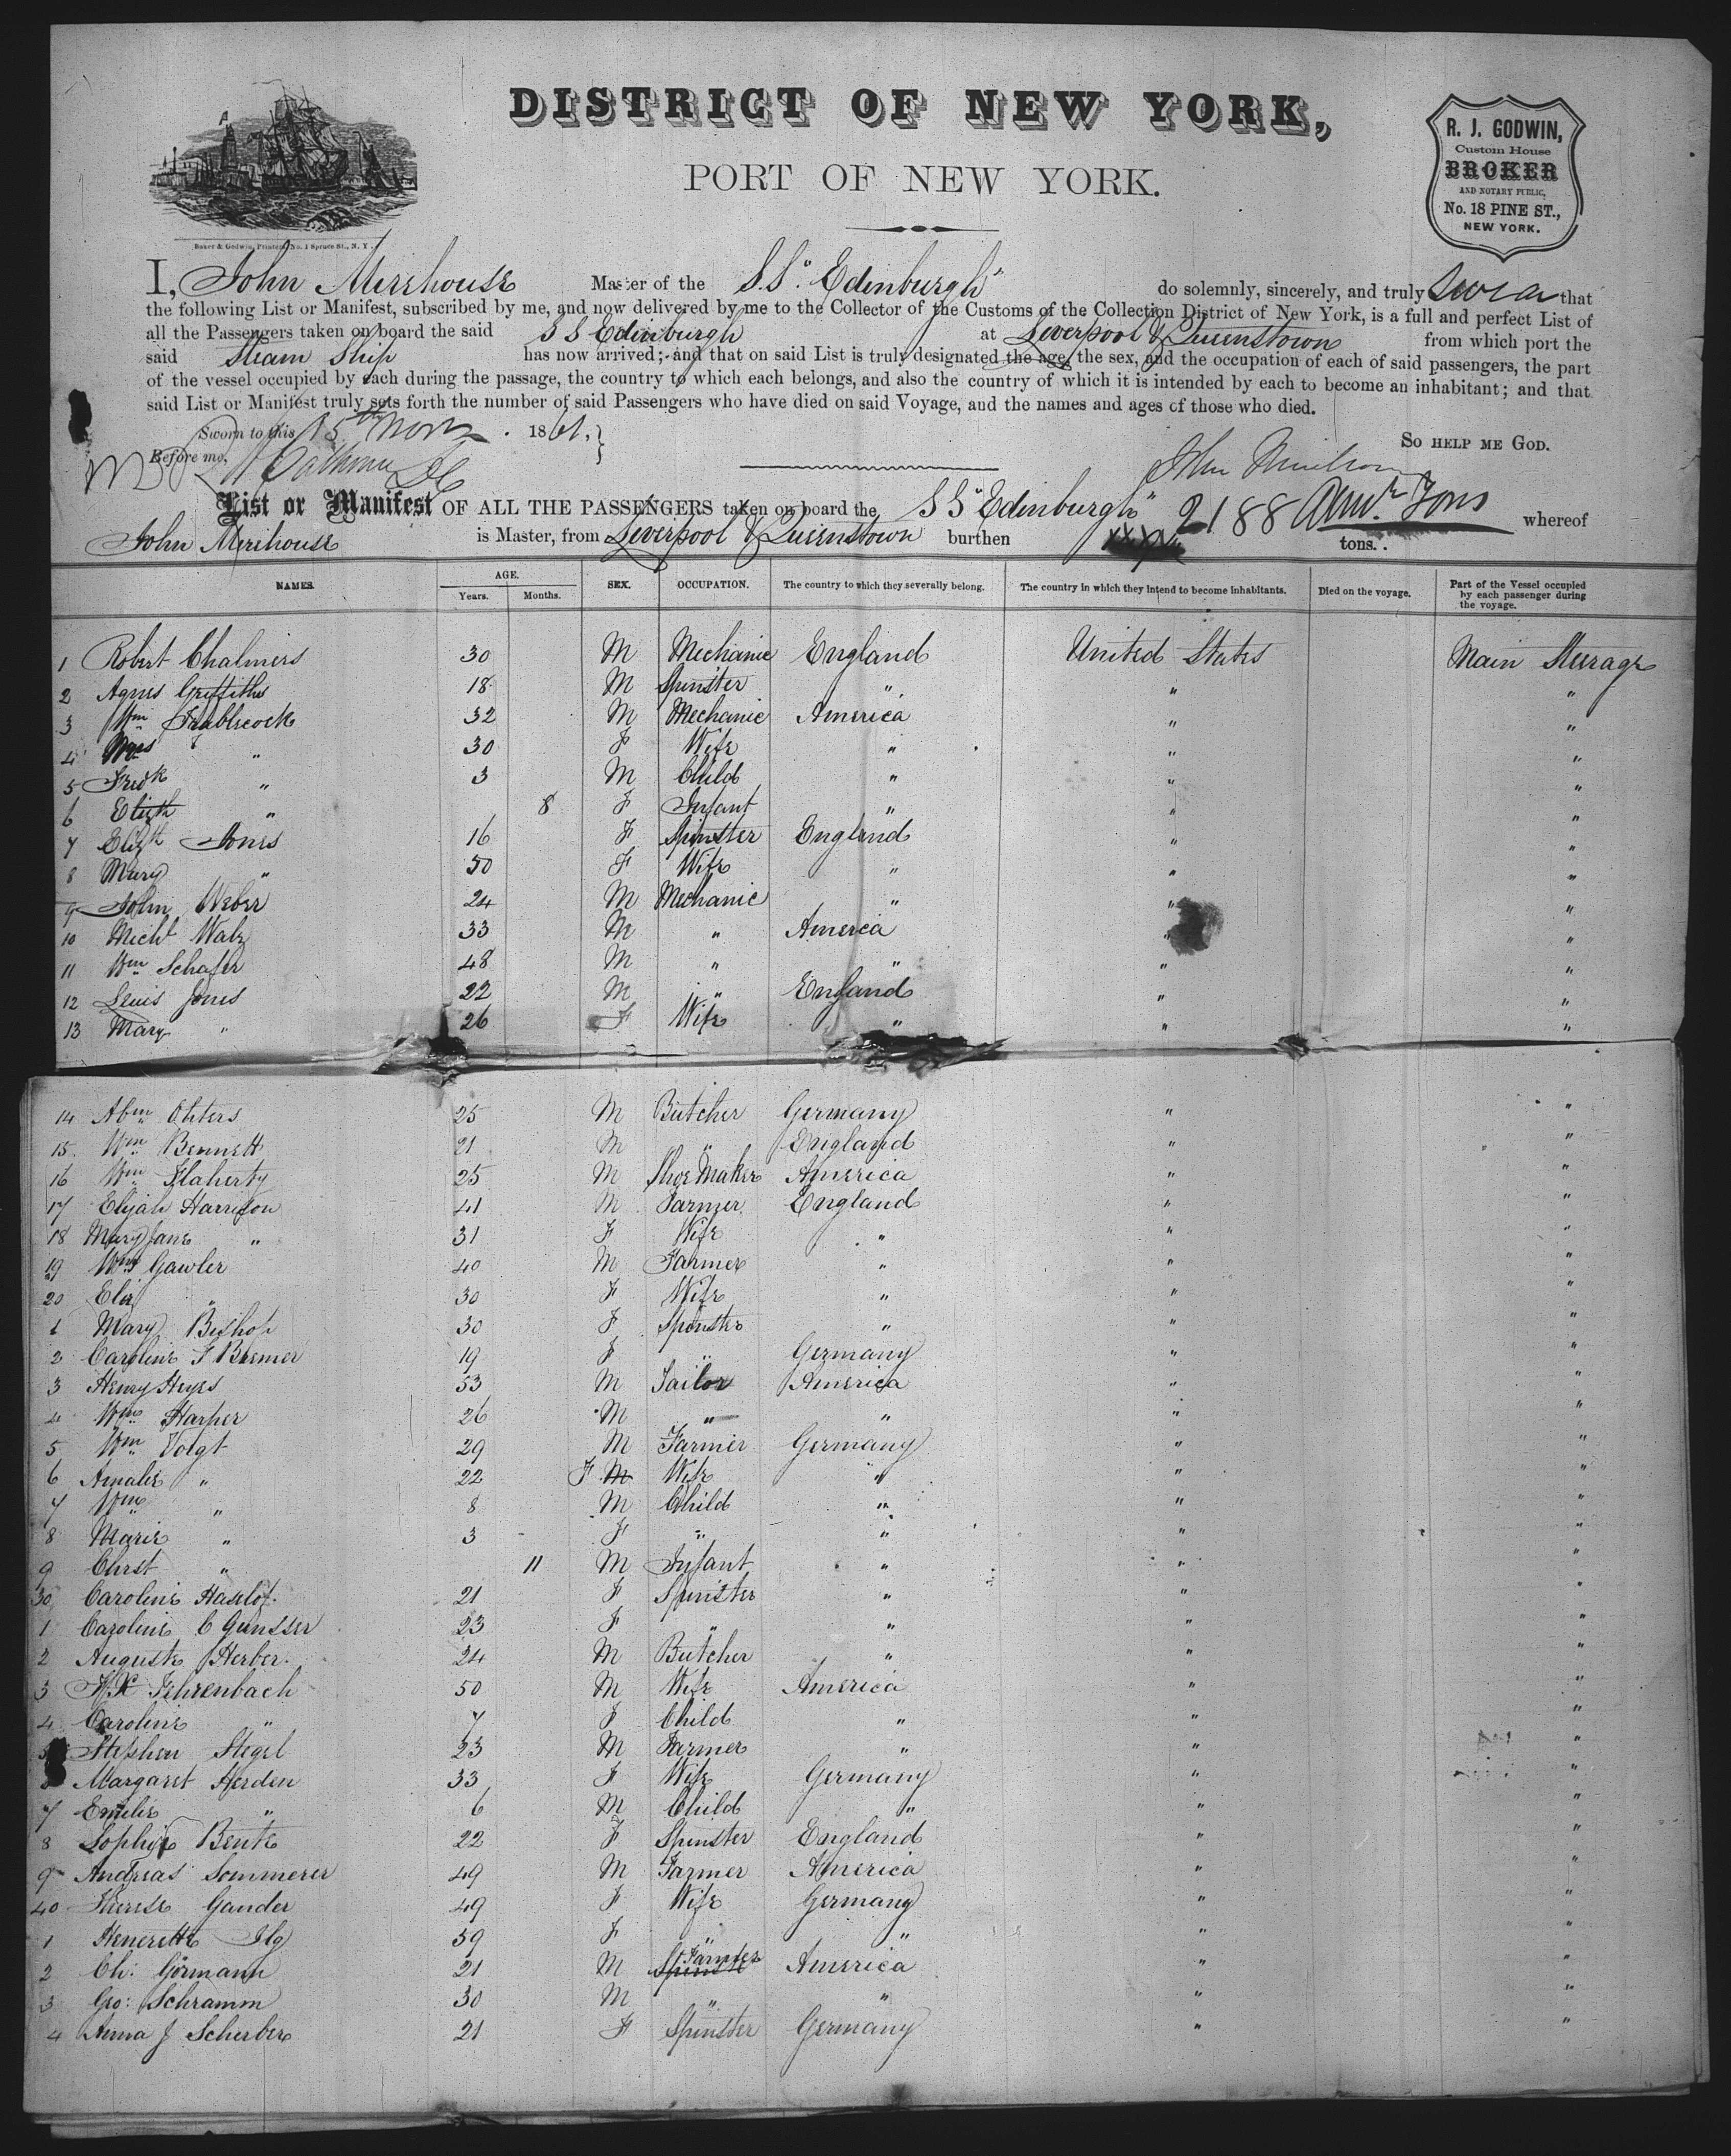 DISTRICT OF NEW YORK,
PORT OF NEW YORK.
R. J. GODWIN,
Custom House
BROKER
AND NOTARY PUBLIC,
No. 18 PINE ST.,
NEW YORK.
Baker & Godwin, Printers, No. 1 Spruce St., N. Y.
I, John Mirehouse Master of the S.S. "Edinburgh" do solemnly, sincerely, and truly swear that
the following List or Manifest, subscribed by me, and now delivered by me to the Collector of the Customs of the Collection District of New York, is a full and perfect List of
all the Passengers taken on board the said S S Edinburgh at Liverpool & Queenstown from which port the
said Steam Ship has now arrived; and that on said List is truly designated the age, the sex, and the occupation of each of said passengers, the part
of the vessel occupied by each during the passage, the country to which each belongs, and also the country of which it is intended by each to become an inhabitant; and that
said List or Manifest truly sets forth the number of said Passengers who have died on said Voyage, and the names and ages of those who died.
Sworn to this 15th Nov. 1861. So HELP ME GOD.
Before me,
List or Manifest OF ALL THE PASSENGERS taken on board the S S "Edinburgh" 2188 Tons whereof
John Mirehouse is Master, from Liverpool & Queenstown burthen tons.
NAMES. AGE. SEX. OCCUPATION. The country to which they severally belong. The country in which they intend to become inhabitants. Died on the voyage. Part of the Vessel occupied by each passenger during the voyage.
Years. Months.
1 Robert Chalmers 30 M Mechanic England United States Main Steerage
2 Agnes Griffiths 18 M Spinster " " "
3 Wm Trablecock 32 M Mechanic America " "
4 Mrs " 30 F Wife " " "
5 Fredk " 3 M Child " " "
6 Elizth " 8 F Infant " " "
7 Elizth Jones 16 F Spinster England " "
8 Mary " 50 F Wife " " "
9 John Weber 24 M Mechanic " " "
10 Michl Walz 33 M " America " "
11 Wm Schafer 48 M " " " "
12 Lewis Jones 22 M " England " "
13 Mary " 26 F Wife " " "
14 Abm Ohters 25 M Butcher Germany " "
15 Wm Bennett 21 M " England " "
16 Wm Flaherty 25 M Shoe Maker America " "
17 Elijah Harrison 41 M Farmer England " "
18 Mary Jane " 31 F Wife " " "
19 Wm Gawler 40 M Farmer " " "
20 Eliz " 30 F Wife " " "
1 Mary Bishop 30 F Spinster " " "
2 Caroline F Bremer 19 F " Germany " "
3 Henry Heyes 53 M Tailor America " "
4 Wm Harper 26 M " " " "
5 Wm Voigt 29 M Farmer Germany " "
6 Amalie " 22 F M Wife " " "
7 Wm " 8 M Child " " "
8 Marie " 3 F " " " "
9 Christ " 11 M Infant " " "
30 Caroline Haslof 21 F Spinster " " "
1 Caroline C Gunsser 23 F " " " "
2 Auguste Herber 24 M Butcher " " "
3 Fehrenbach 50 M Wife America " "
4 Caroline " 7 F Child " " "
5 Stephen Stegel 23 M Farmer " " "
Margaret Herden 33 F Wife Germany " "
7 Emilie " 6 M Child " " "
8 Sophie Bente 22 F Spinster England " "
9 Andreas Sommerer 49 M Farmer America " "
40 Therese Gander 49 F Wife Germany " "
1 Henerette Ilg 59 F " " " "
2 Ch: Görmann 21 M Farmer America " "
3 Geo: Schramm 30 M " " " "
4 Anna J Scherber 21 F Spinster Germany " "